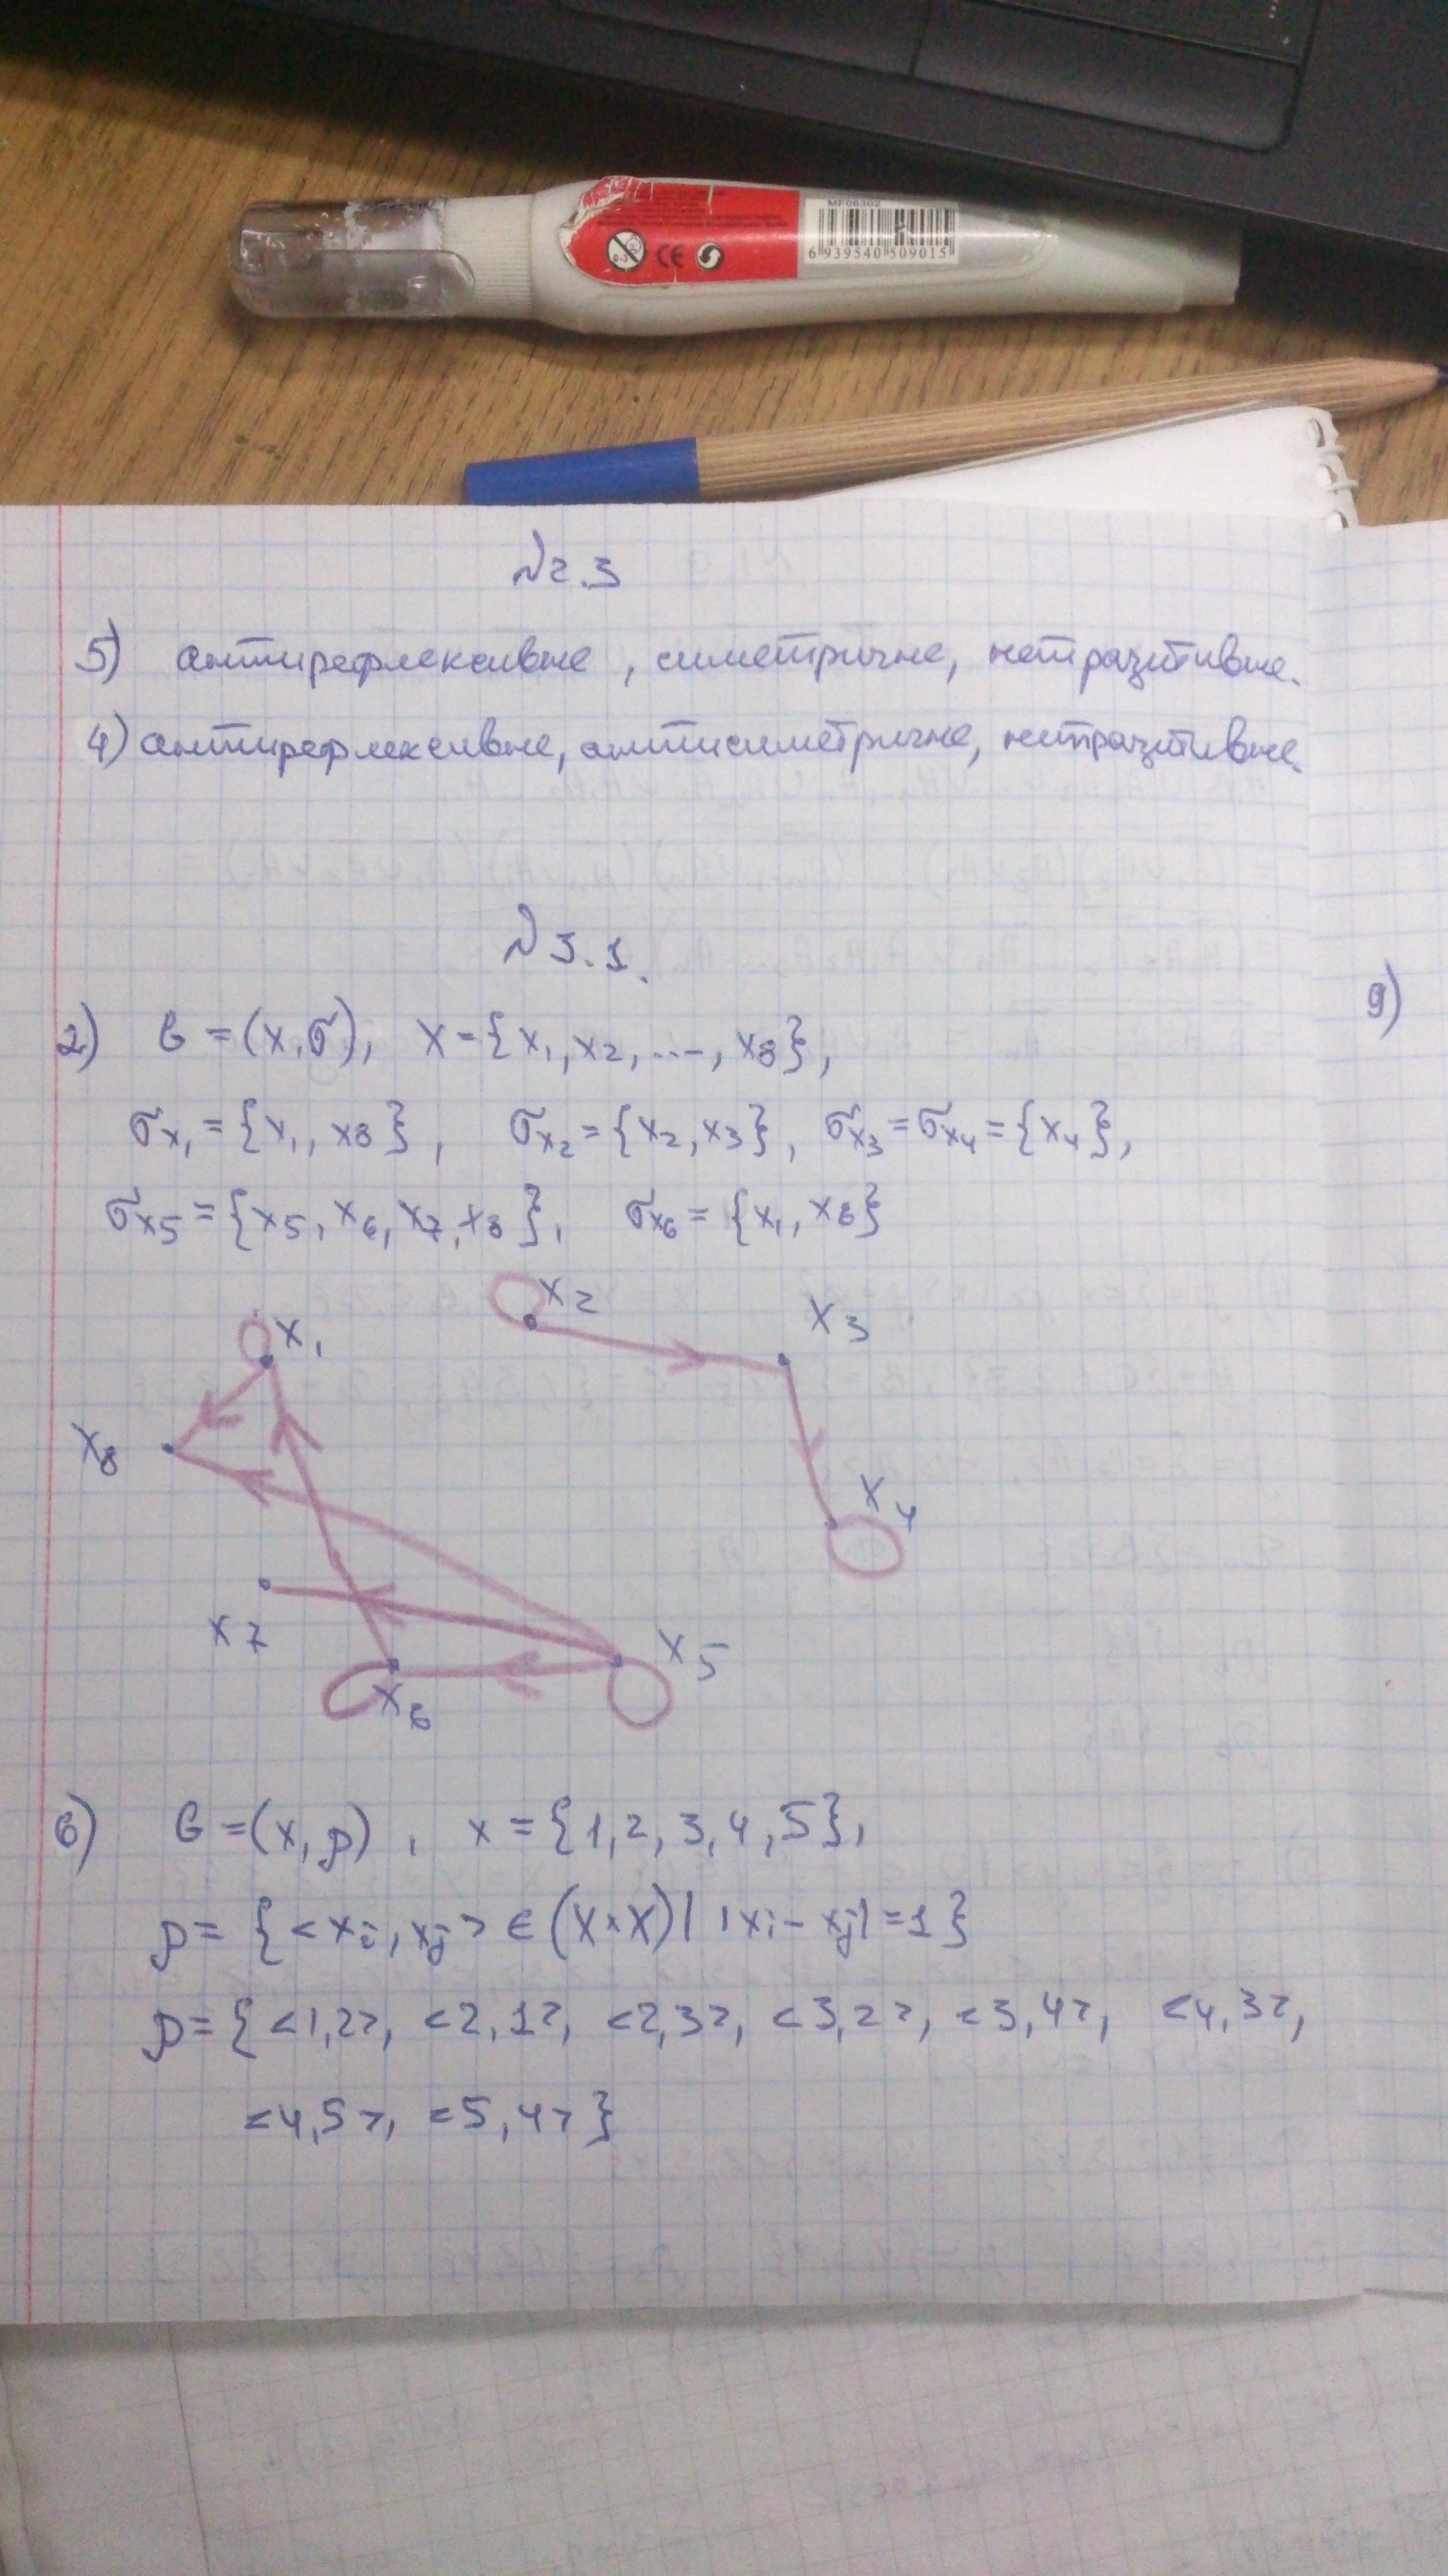 MF06302
0-3 CE
6 939540 509015
№2.3
5) антирефлексивне, симетричне, нетразитивне.
4) антирефлексивне, антисиметричне, нетразитивне.
№3.1.
2) G = (X, σ), X = {x₁, x₂, ..., x₈},
σx₁ = {x₁, x₈}, σx₂ = {x₂, x₃}, σx₃ = σx₄ = {x₄},
σx₅ = {x₅, x₆, x₇, x₈}, σx₆ = {x₁, x₆}
x₂
x₃
x₁
x₈
x₄
x₇
x₅
x₆
6) G = (X, ρ), x = {1, 2, 3, 4, 5},
ρ = {<xi, xj> ∈ (X×X) | |xi - xj| = 1}
ρ = {<1,2>, <2,1>, <2,3>, <3,2>, <3,4>, <4,3>,
<4,5>, <5,4>}
9)